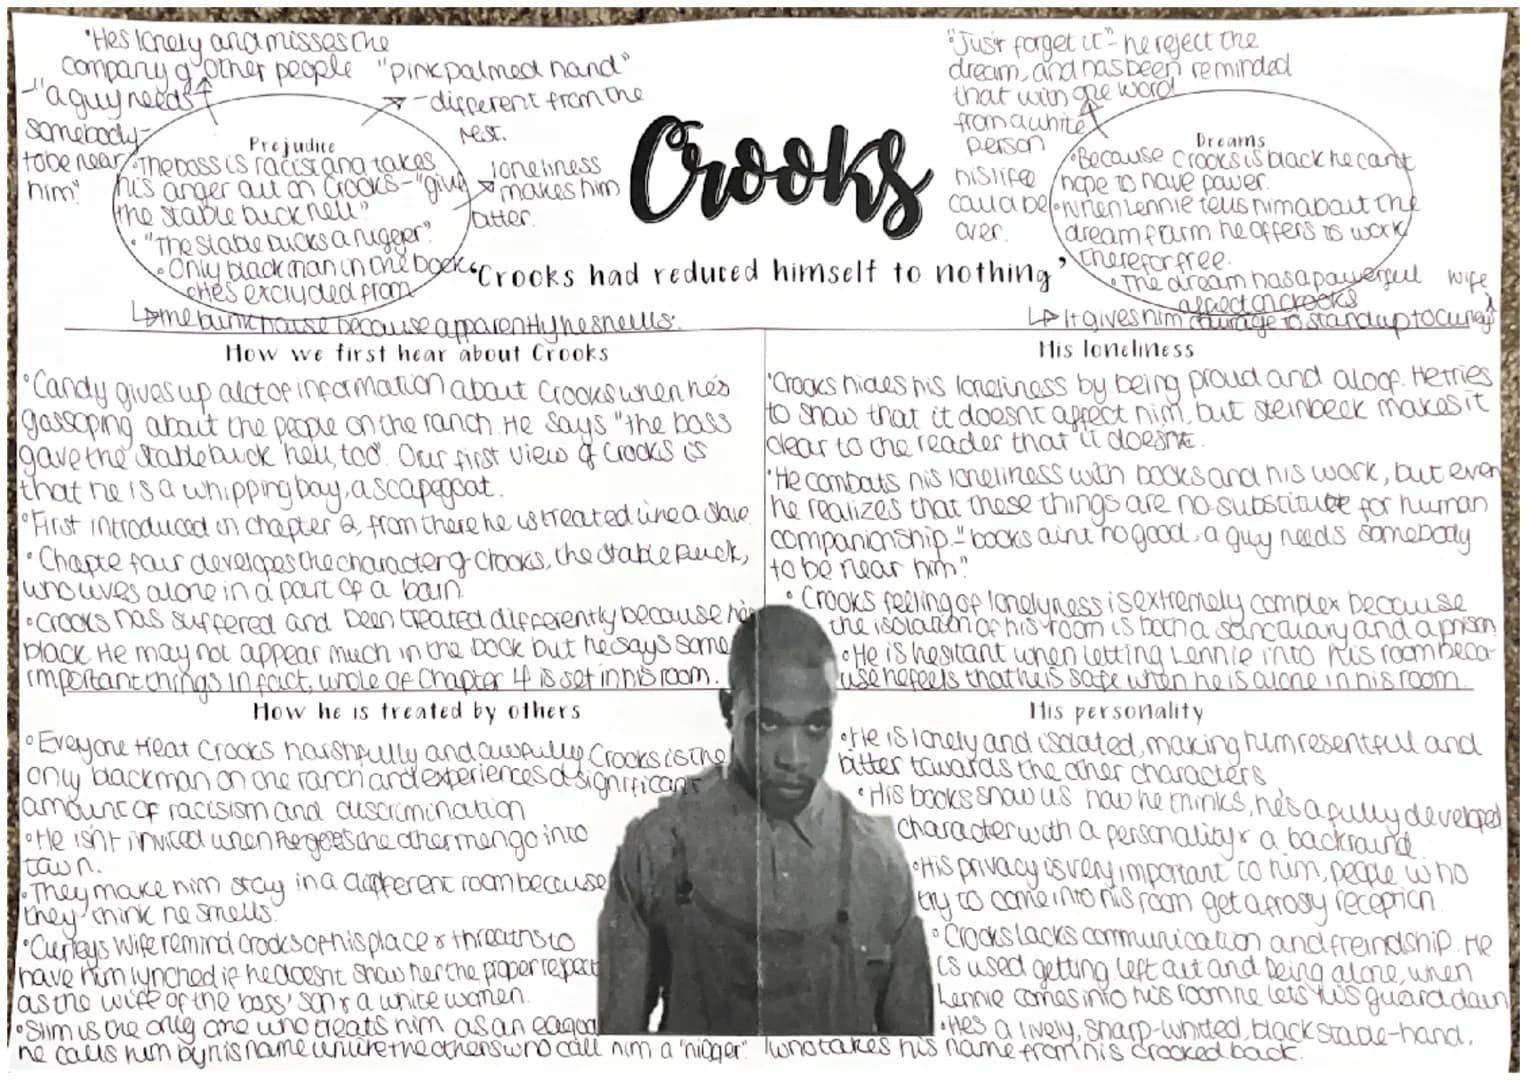 "Hes lonely and misses the
company of other people
"a guy needs
somebody-
to be near
him"
"pink palmed hand"
-different from the
rest.
loneliness
makes him
bitter.
Prejudice
•The boss is racist and takes
his anger out on Crooks-"give
the stable buck hell"
• "The stable bucks a nigger".
•Only black man in the book
•Hes excluded from
the bunk house because apparently he smells.
Crooks
'Crooks had reduced himself to nothing'
"Just forget it"- he reject the
dream, and has been reminded
that with one word
from a white
person
his life
could be
over.
Dreams
•Because Crooks is black he cant
hope to have power.
•When Lennie tells him about the
dream farm he offers to work
there for free.
•The dream has a powerful
affect on crooks
It gives him courage to stand up to curley's wife
How we first hear about Crooks
•Candy gives up alot of information about Crooks when he's
gossoping about the people on the ranch. He says "the boss
gave the stable buck hell, too". Our first view of Crooks is
that he is a whipping boy, a scapegoat.
•First introduced in chapter 2, from there he is treated like a slave.
•Chapte four developes the character of Crooks, the stable buck,
who lives alone in a part of a barn.
•Crooks has suffered and been treated differently because his
black. He may not appear much in the book but he says some
important things in fact, whole of Chapter 4 is set in his room.
His loneliness
•Crooks hides his loneliness by being proud and aloof. He tries
to show that it doesnt affect him, but steinbeck makes it
clear to the reader that it doesnt.
•He combats his loneliness with books and his work, but even
he realizes that these things are no substitute for human
companionship-"books aint no good, a guy needs somebody
to be near him."
•Crooks feeling of lonelyness is extremely complex because
the isolation of his room is both a sanctuary and a prison
•He is hesitant when letting Lennie into his room beca-
use he feels that he is safe when he is alone in his room.
How he is treated by others
•Everyone treat Crooks harshfully and awfully. Crooks is the
only black man on the ranch and experiences a significant
amount of racisism and discrimination
•He isn't invited when the other men go into
town.
•They make him stay in a different room because
they think he smells.
•Curleys wife remind crooks of his place & threatns to
have him lynched if he doesnt show her the proper respect
as the wife of the boss' son & a white women.
•Slim is the only one who treats him as an eaqoal
he calls him by his name unlike the others who call him a "nigger".
His personality
•He is lonely and isolated, making him resentful and
bitter towards the other characters
•His books show us how he thinks, he's a fully developed
character with a personality & a backround.
•His privacy is very important to him, people who
try to come into his room get a frosty reception.
•Crooks lacks communication and freindship. He
is used getting left out and being alone, when
Lennie comes into his room he lets his guard down
•He's a lively, sharp-whitted, black stable-hand,
who takes his name from his crooked back.